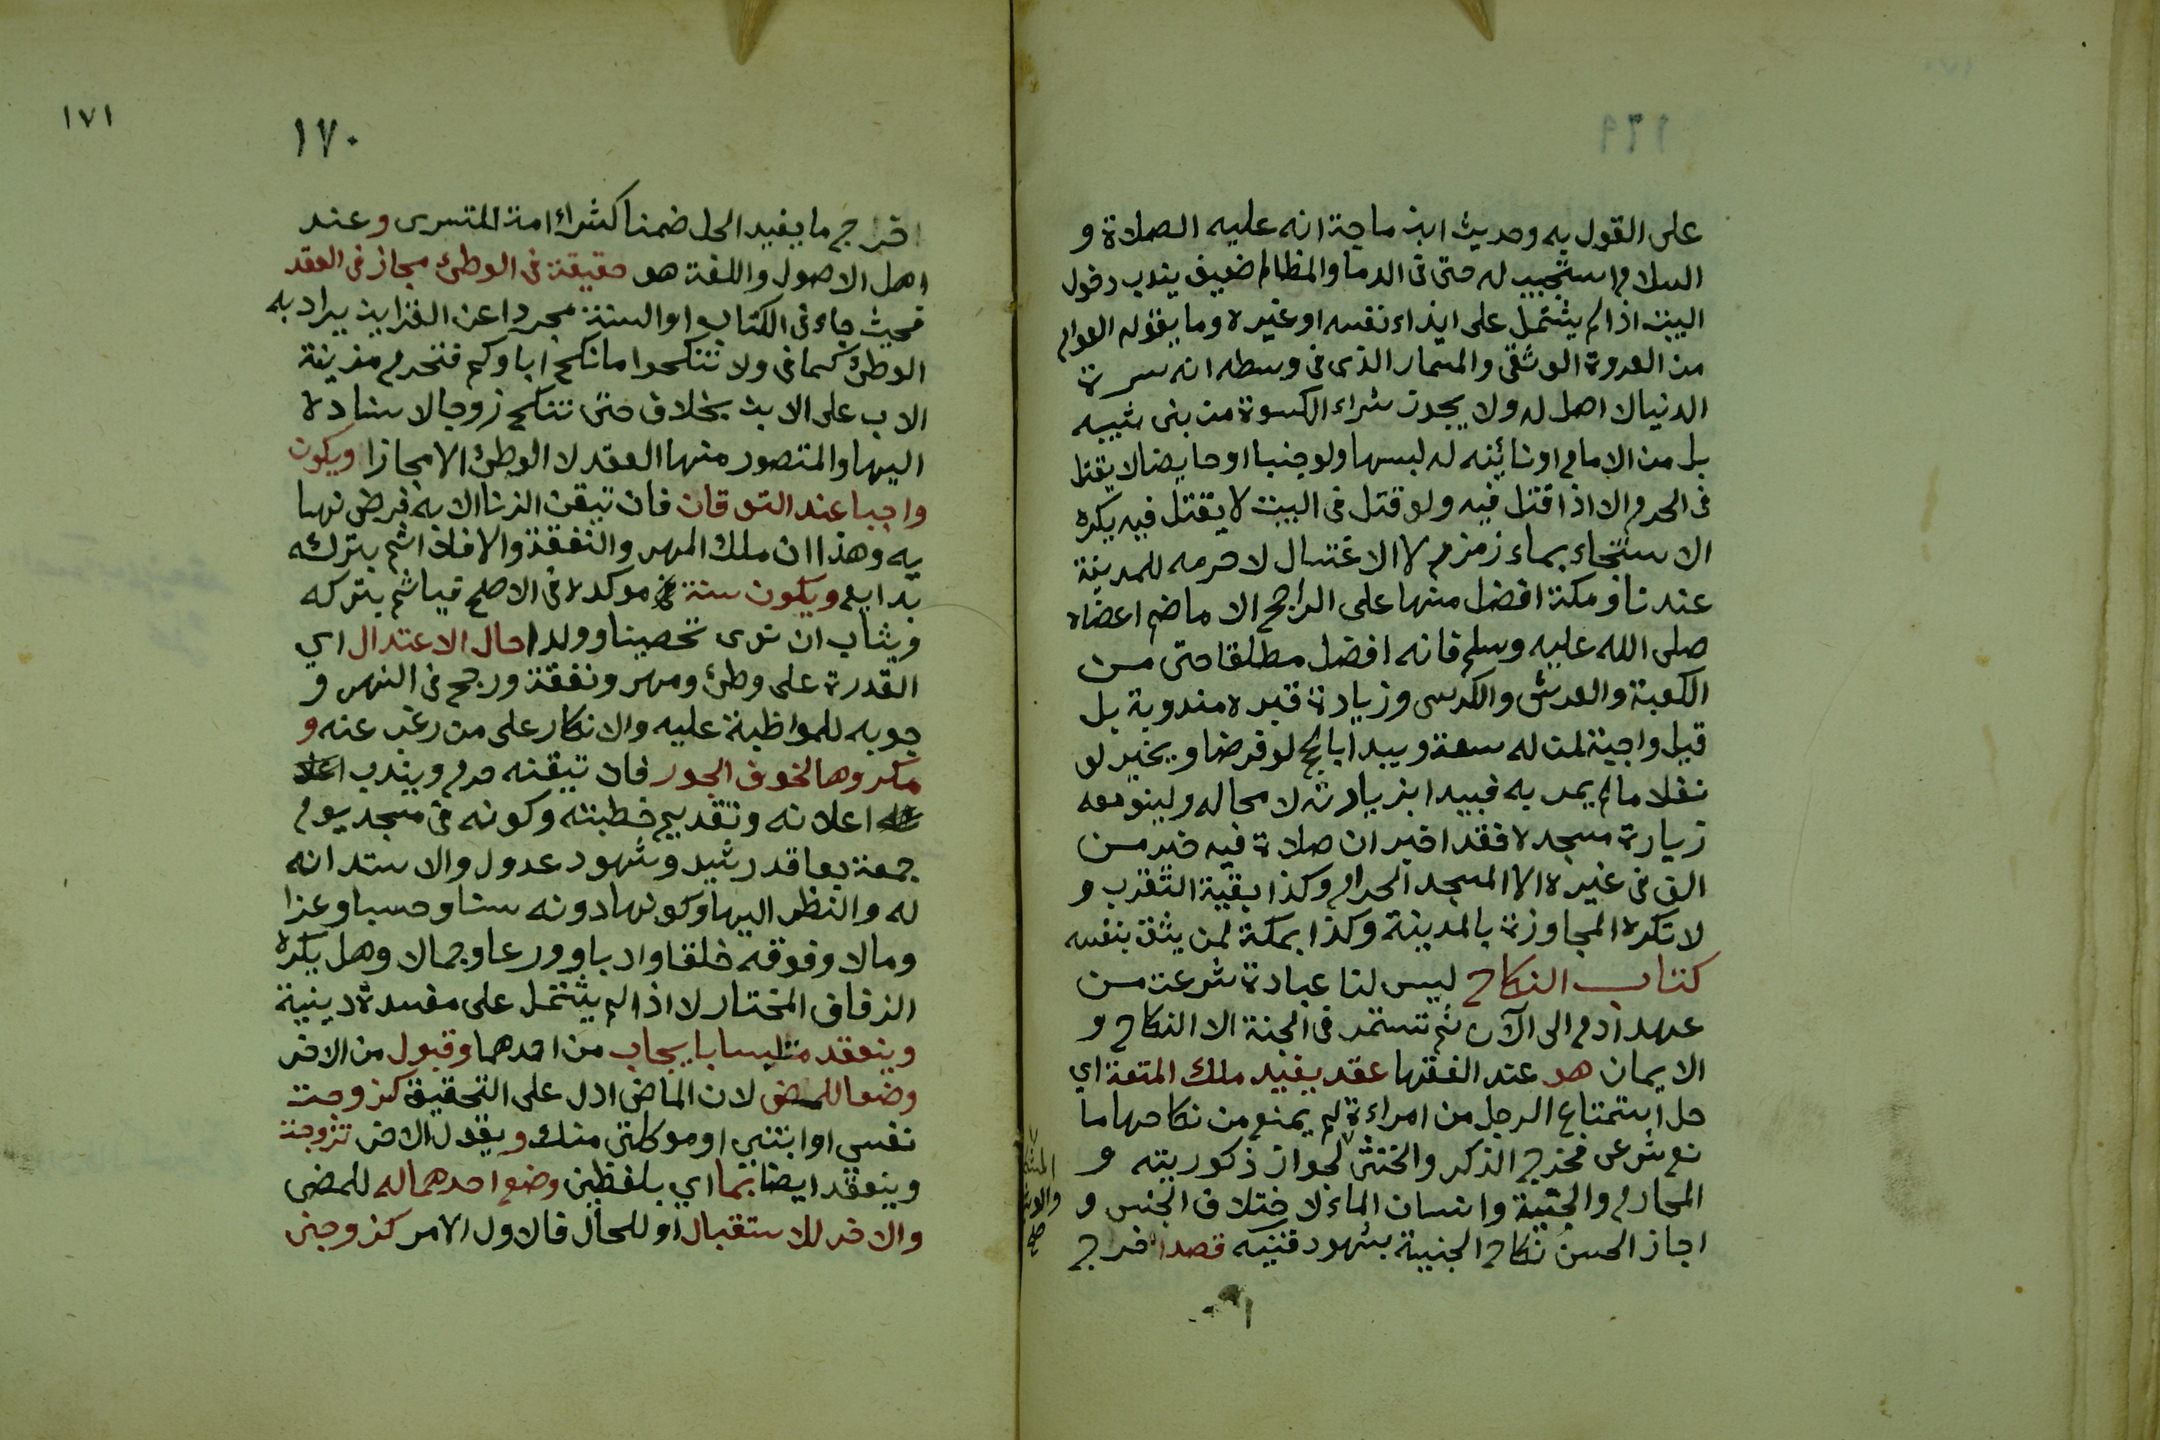 ١٦٩
على القول به وحديث ابن ماجة انه عليه الصلاة و
السلام استجيب له حتى فى الدما والمظالم ضعيف يندب دخول
البيت اذا لم يشتمل على ايذاء نفسه او غيره وما يقوله العوام
من العروة الوثقى والمسمار الذى فى وسطه انه سرة
الدنيا لا اصل له ولا يجوز شراء الكسوة من بنى شيبه
بل من الامام او نائبه له لبسها ولو جنبا او حايضا لا يقتل
فى الحرم الا اذا قتل فيه ولو قتل فى البيت لا يقتل فيه يكره
الاستنجاء بماء زمزم لا الاغتسال لا حرمه للمدينة
عندنا ومكة افضل منها على الراجح الا ما ضم اعضاه
صلى الله عليه وسلم فانه افضل مطلقا حتى من
الكعبة والعرش والكرسى وزيارة قبره مندوبة بل
قيل واجبة لمن له سعة ويبدا بالحج لو فرضا ويخير لو
نفلا مالم يمر به فيبدا بزيارته لا محاله ولينو معه
زيارة مسجده فقد اخبر ان صلاة فيه خير من
الف فى غيره الا المسجد الحرام وكذا بقية التقرب و
لا تكره المجاوزة بالمدينة وكذا بمكة لمن يثق بنفسه
كتاب النكاح ليس لنا عبادة شرعت من
عهد آدم الى الآن ثم تستمر فى الجنة الا النكاح و
الايمان هو عند الفقها عقد يفيد ملك المتعة اي
حل استمتاع الرجل من امراءة لم يمنع من نكاحها ما
نع شرعى فخرج الذكر والخنثى لجواز ذكوريته و
المحارم والجنية وانسان الماء لاختلاف الجنس و
اجاز الحسن نكاح الجنية بشهود قنيه قصدا خرج
١٧١
١٧٠
اخراج ما يفيد الحل ضمنا كشراء امة للتسرى وعند
اهل الاصول واللغة هو حقيقة فى الوطئ مجاز فى العقد
فحيث جاء فى الكتاب او السنة مجردا عن القراين يراد به
الوطئ كما فى ولا تنكحوا ما نكح اباوكم فتحرم مزنية
الاب على الابن بخلاف حتى تنكح زوجا لاسناده
اليها والمتصور منها العقد لا الوطئ الا مجازا ويكون
واجبا عند التوقان فان تيقن الزنا الا به فرض نهايه
يه وهذا ان ملك المهر والنفقة والا فلا اثم بتركه
بدايع ويكون سنة موكدة فى الاصح فياثم بتركه
ويثاب ان نوى تحصينا وولدا حال الاعتدال اي
القدرة على وطئ ومهر ونفقة ورجح فى النهر و
جوبه للمواظبة عليه والانكار على من رغب عنه و
مكروها لخوف الجور فان تيقنه حرم ويندب
اعلانه وتقديم خطبته وكونه فى مسجد يوم
جمعة بعاقد رشيد وشهود عدول والاستدانه
له والنظر اليها وكونها دونه سنا وحسبا وعزا
ومالا وفوقه خلقا وادبا وورعا وجمالا وهل يكره
الزفاف المختار لا اذا لم يشتمل على مفسدة دينية
وينعقد متلبسا بايجاب من احدهما وقبول من الاخر
وضعا للمضى لان الماضى ادل على التحقيق كزوجت
نفسى او ابنتى او موكلتى منك ويقول الاخر تزوجت
وينعقد ايضا بما اي بلفظين وضع احدهما له للمضى
والاخر للاستقبال او للحال فالاول الامر كزوجنى